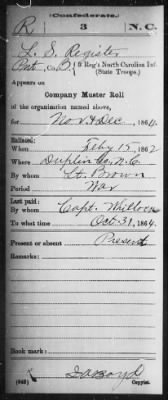 (Confederate.)
R 3 N.C.
L. S. Register
Pvt., Co. B, 3 Reg't North Carolina Inf.
(State Troops.)
Appears on
Company Muster Roll
of the organization named above,
for Nov & Dec, 1864.
Enlisted:
When Feby 15, 1862
Where Duplin Co, N.C.
By whom Lt. Brown
Period War
Last paid:
By whom Capt.
To what time Oct 31, 1864
Present or absent Present
Remarks:
Book mark:
(642) Copyist.